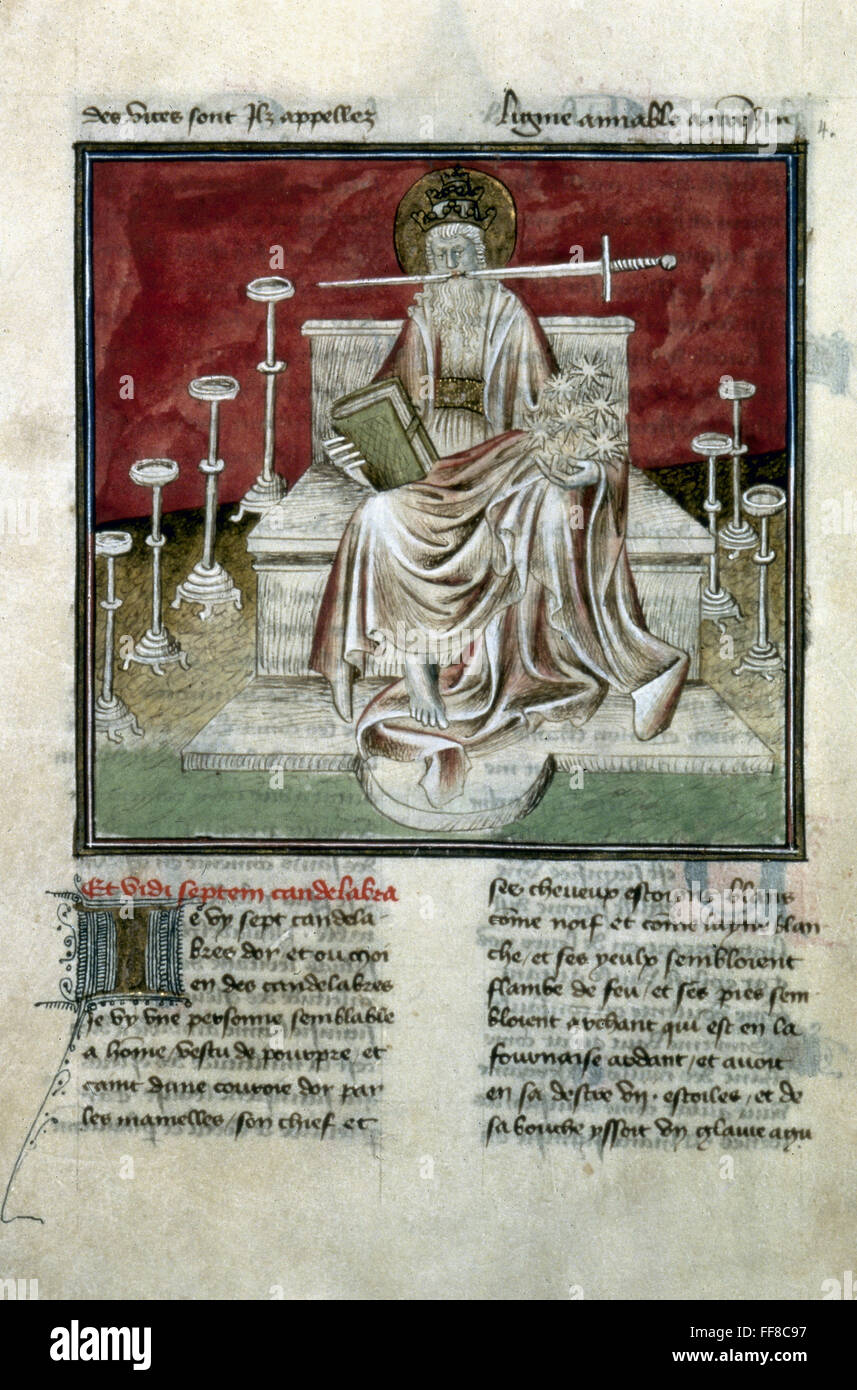 des vices sont Ilz appellez
ligne amable
4.
Et vidi septem candelabra
Ie vy sept candela-
bres dor et ou moi
en des candelabres
Je vy vne personne semblable
a hōme / vestu de pourpre et
caint dune couroie dor par
les mamelles / son chief et
ses cheueux estoient blans
cōme noif et cōme layne blan
che / et ses yeulx sembloient
flambe de feu / et ses pies sem
bloient archant qui est en la
fournaise ardant / et auoit
en sa destre vij · estoiles / et de
sa bouche yssoit vn glaiue agu
alamy stock photo
FF8C97
www.alamy.com